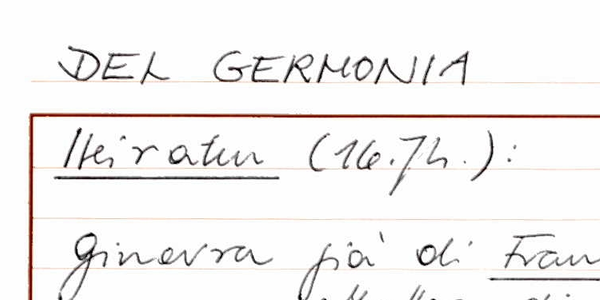 DEL GERMONIA
Heiraten (16.Jh.):
Ginevra già di Fran